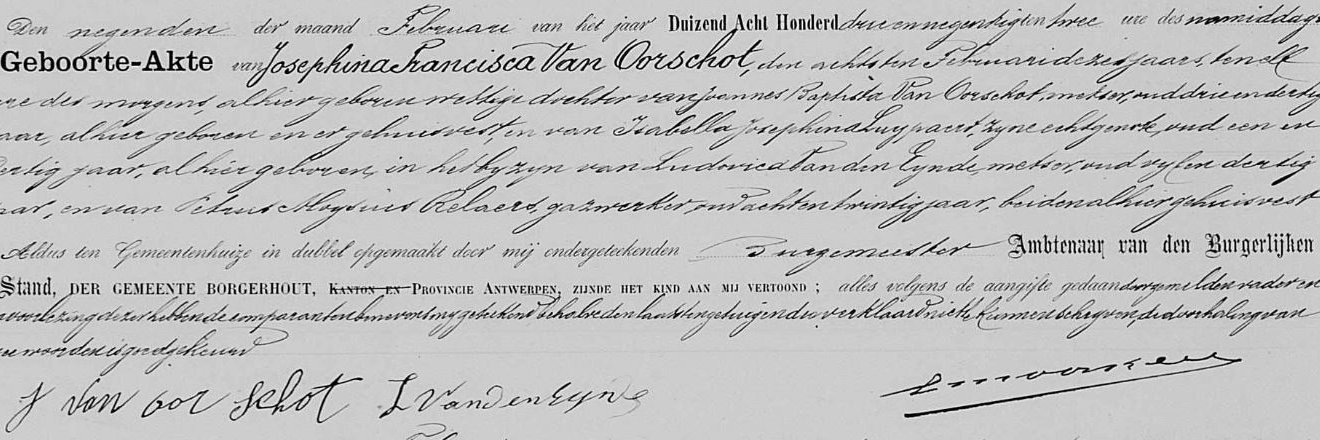 Den negenden der maand Februari van het jaar Duizend Acht Honderd drie en negentig ten twee ure des namiddags
Geboorte-Akte van Josephina Francisca Van Oorschot, den achtsten Februari dezes jaars, ten elf
ure des morgens, alhier geboren wettige dochter van Joannes Baptista Van Oorschot, metser, oud drie en dertig
jaar, alhier geboren en er gehuisvest, en van Isabella Josephina Luypaert, zyne echtgenote, oud een en
dertig jaar, alhier geboren, in het byzyn van Ludovica Van den Eynde, metser, oud vyf en dertig
jaar, en van Petrus Aloysius Relaers, gazwerker, oud acht en twintig jaar, beiden alhier gehuisvest
Aldus ten Gemeentenhuize in dubbel opgemaakt door mij ondergeteekenden Burgemeester Ambtenaar van den Burgerlijken
Stand, DER GEMEENTE BORGERHOUT, KANTON EN PROVINCIE ANTWERPEN, ZIJNDE HET KIND AAN MIJ VERTOOND; alles volgens de aangifte gedaan door gemelden vader en
na voorlezing dezer hebben de comparanten benevens my geteekend behalve den laatsten getuigen die verklaard niet te kunnen schryven, de doorhaling van
woorden is goedgekeurd
J Van oor schot L Van den Eynde